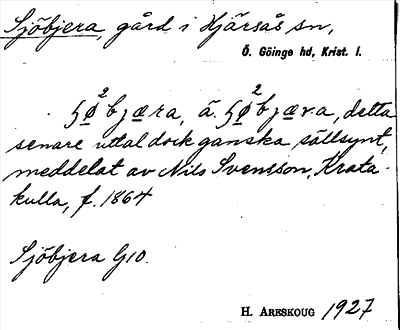 Sjöbjera, gård i Hjärsås sn,
Ö. Göinge hd, Krist. l.
ʃø²bjæra, ä. ʃø²bjæva, detta
senare uttal dock ganska sällsynt,
meddelat av Nils Svensson, Krata-
kulla, f. 1864
Sjöbjera G10.
H. ARESKOUG 1927